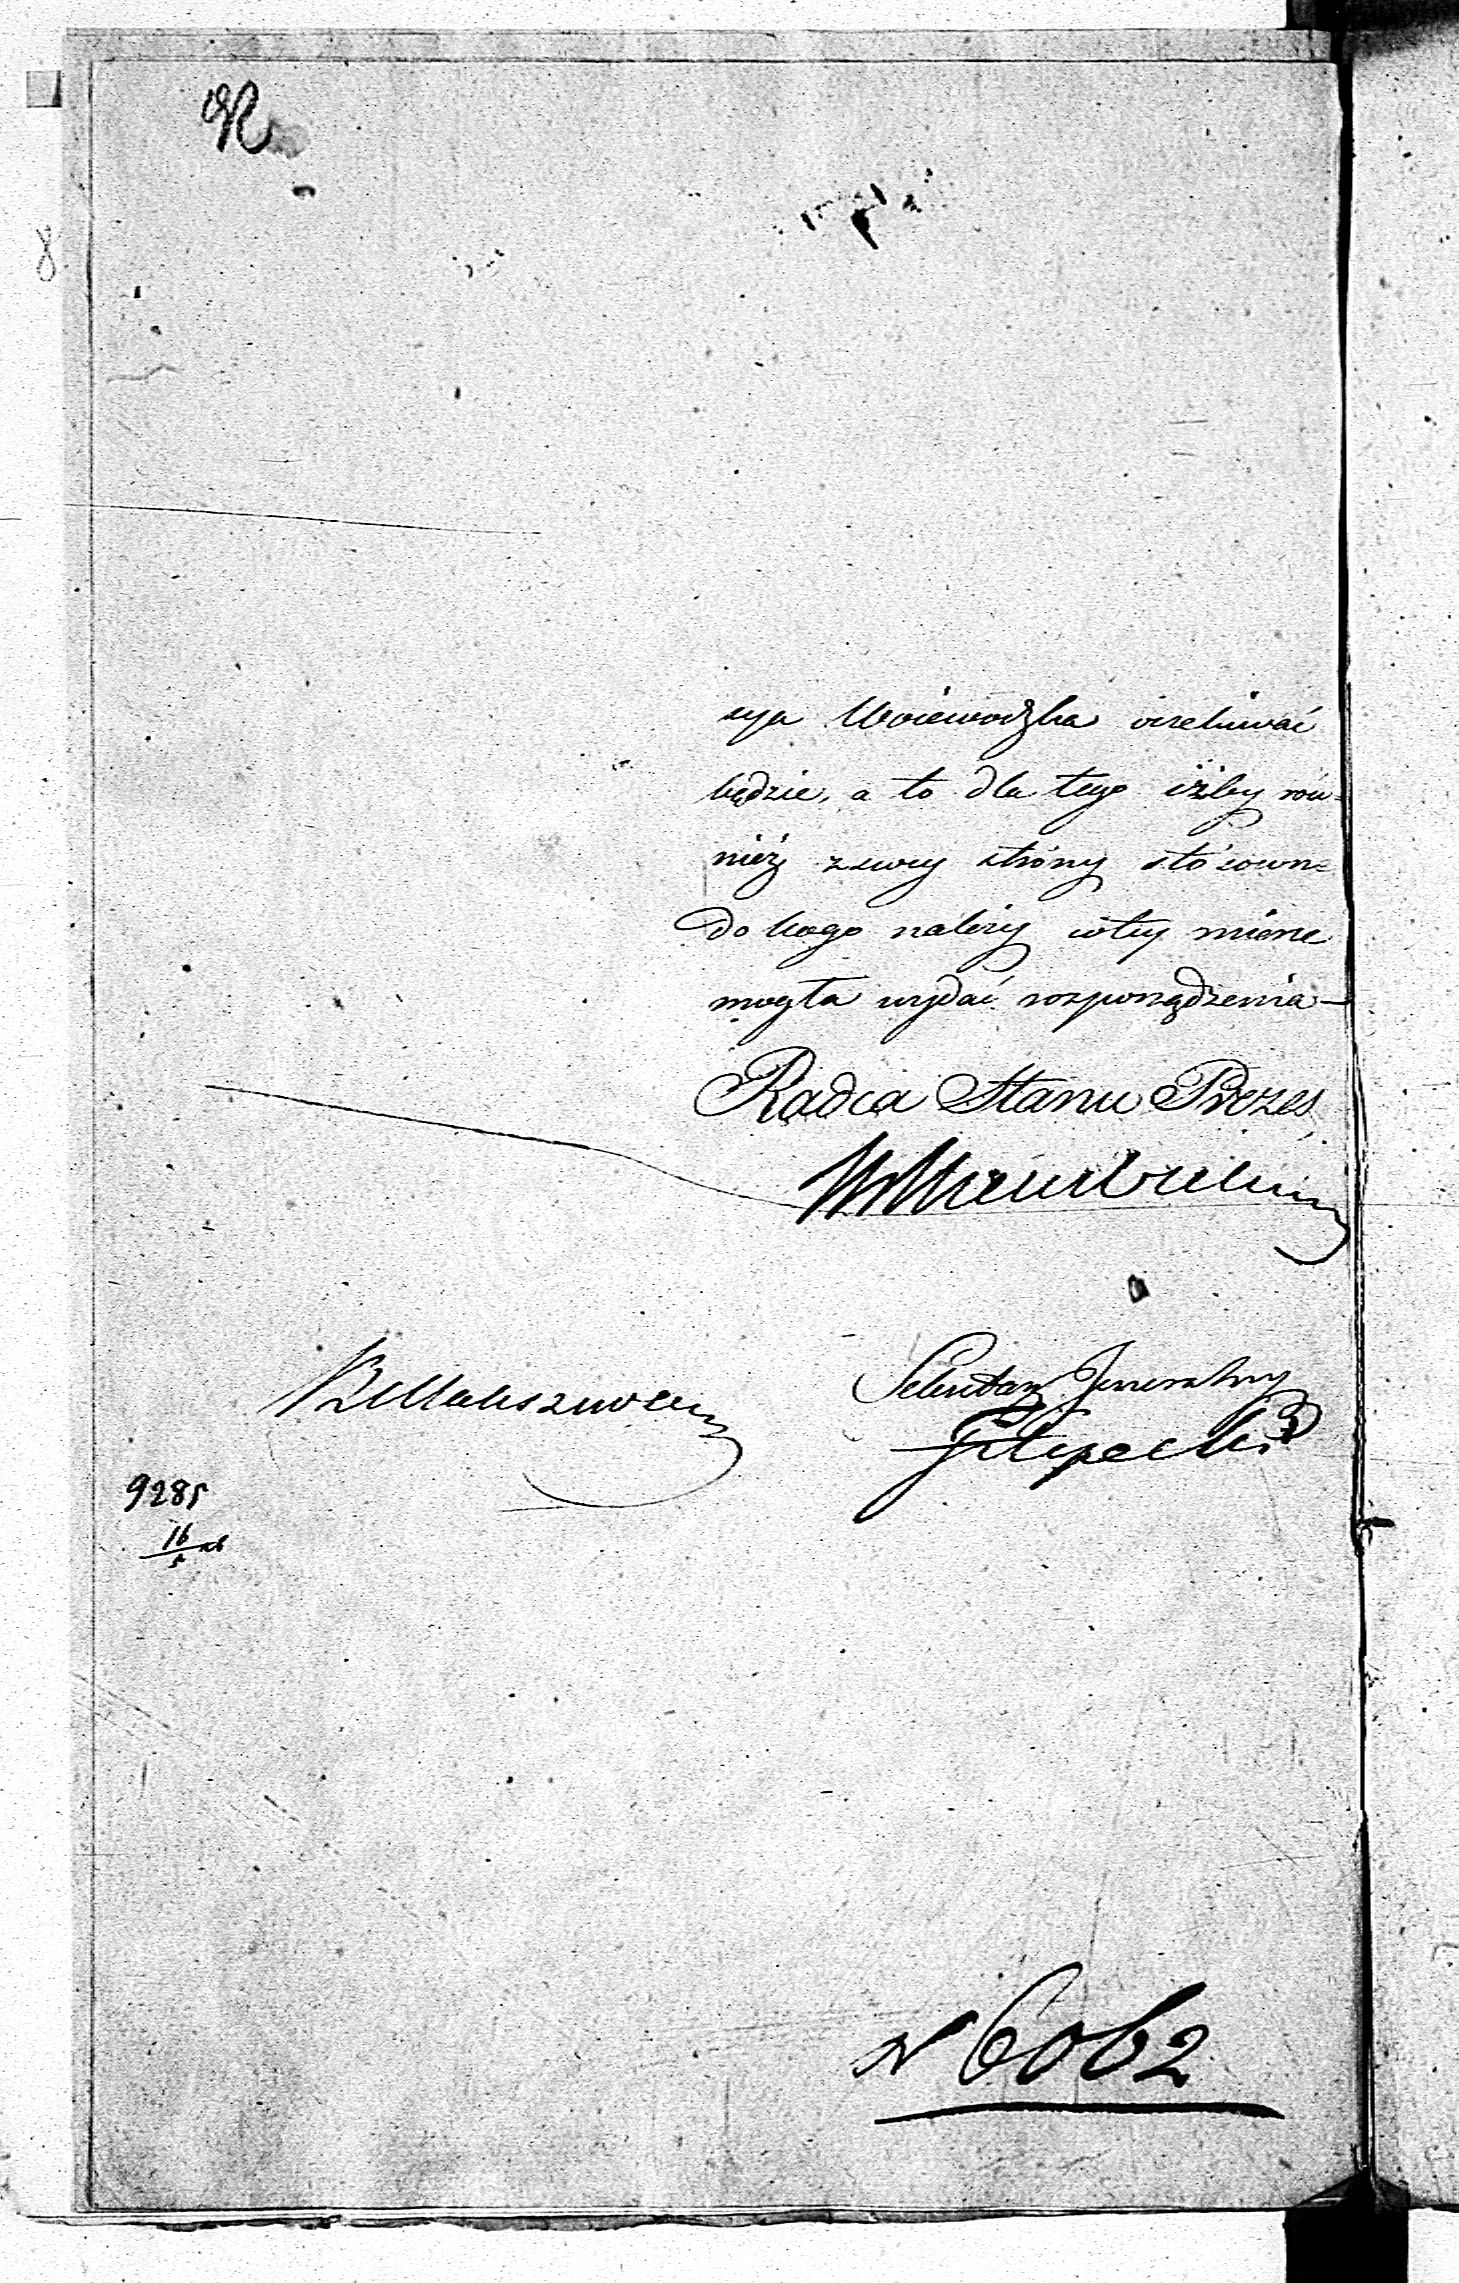 8
syja Woiewodzka oczekiwać
będzie, a to dla tego iżby rów-
nież z swey strony stósowne
do kogo należy w tey mierze
mogła wydać rozporządzenia —
Radca Stanu Prezes
Sekretarz Jeneralny
Filipecki
9285
16
N 6062